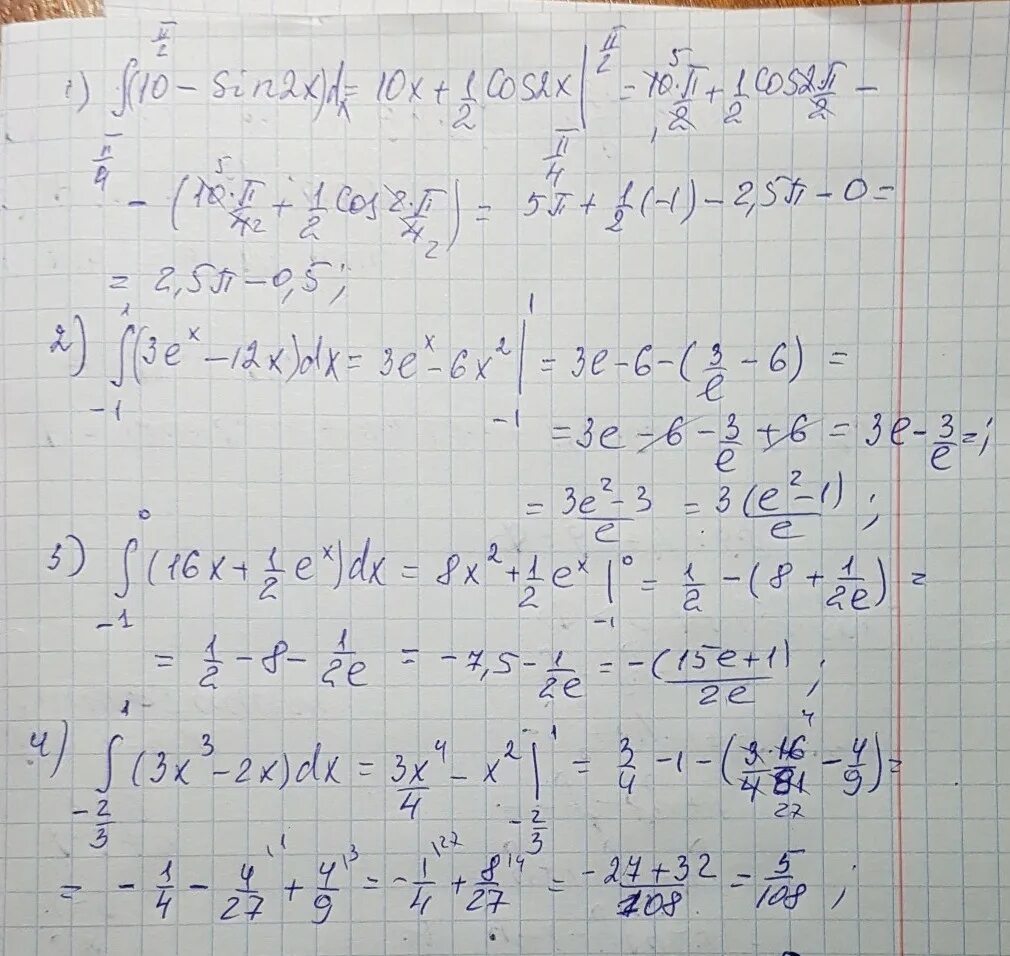 1) ∫_{π/4}^{π/2} (10 − sin2x)dx = 10x + 1/2 cos2x |_{π/4}^{π/2} = 10·π/2 + 1/2 cos 2π/2 −
− (10·π/4 + 1/2 cos 2·π/4) = 5π + 1/2 (−1) − 2,5π − 0 =
= 2,5π − 0,5 ;
2) ∫_{−1}^{1} (3e^x − 12x)dx = 3e^x − 6x^2 |_{−1}^{1} = 3e − 6 − (3/e − 6) =
= 3e − 6 − 3/e + 6 = 3e − 3/e = ;
= (3e^2 − 3)/e = 3(e^2 − 1)/e ;
3) ∫_{−1}^{0} (16x + 1/2 e^x)dx = 8x^2 + 1/2 e^x |_{−1}^{0} = 1/2 − (8 + 1/2e) =
= 1/2 − 8 − 1/2e = −7,5 − 1/2e = −(15e + 1)/2e ;
4) ∫_{−2/3}^{1} (3x^3 − 2x)dx = 3x^4/4 − x^2 |_{−2/3}^{1} = 3/4 − 1 − (3·16/4·81 − 4/9) =
= − 1/4 − 4/27 + 4/9 = − 1/4 + 8/27 = (−27 + 32)/108 = 5/108 ;